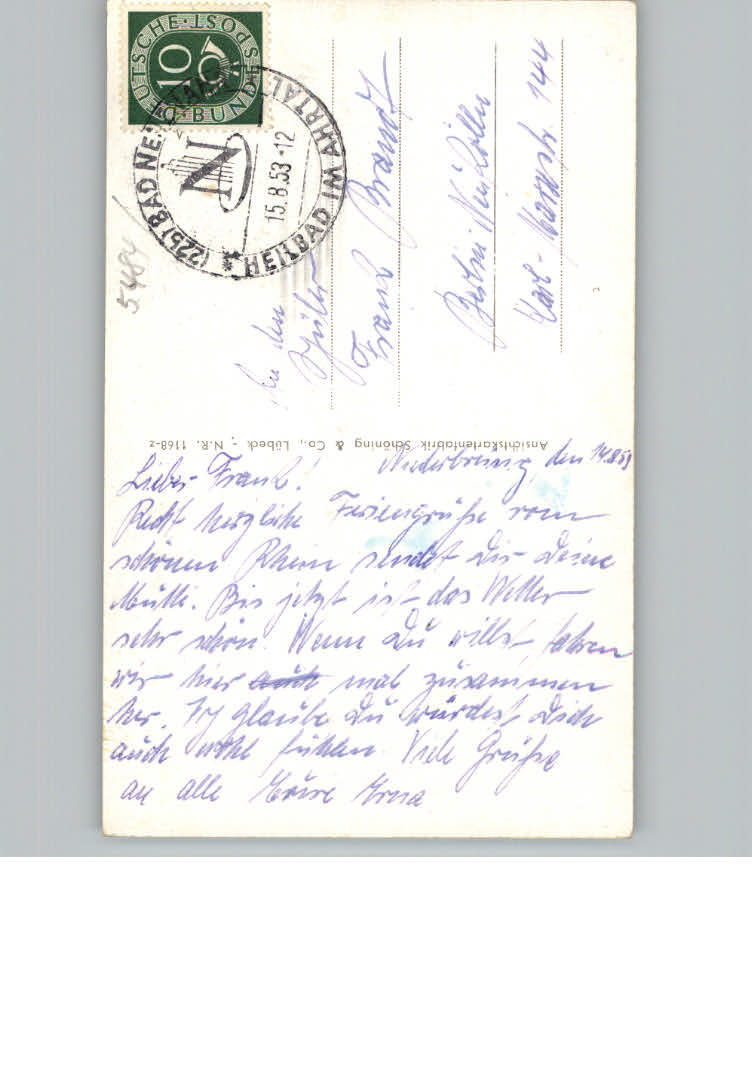 DEUTSCHE · BUNDESPOST
10
(22b) BAD NEUENAHR
HEILBAD IM AHRTAL
N
15.8.53-12
5484
An den
Schüler
Frank Brandt
Berlin-Neukölln
Karl-Marxstr. 144
Ansichtskartenfabrik Schöning & Co., Lübeck - N.R. 1168-z
Niederbreisig, den 14.8.53
Lieber Frank!
Recht herzliche Feriengrüße vom
schönen Rhein sendet Dir Deine
Mutti. Bis jetzt ist das Wetter
sehr schön. Wenn Du willst fahren
wir hier auch mal zusammen
her. Ich glaube Du würdest Dich
auch wohl fühlen. Viele Grüße
an alle Eure Erna